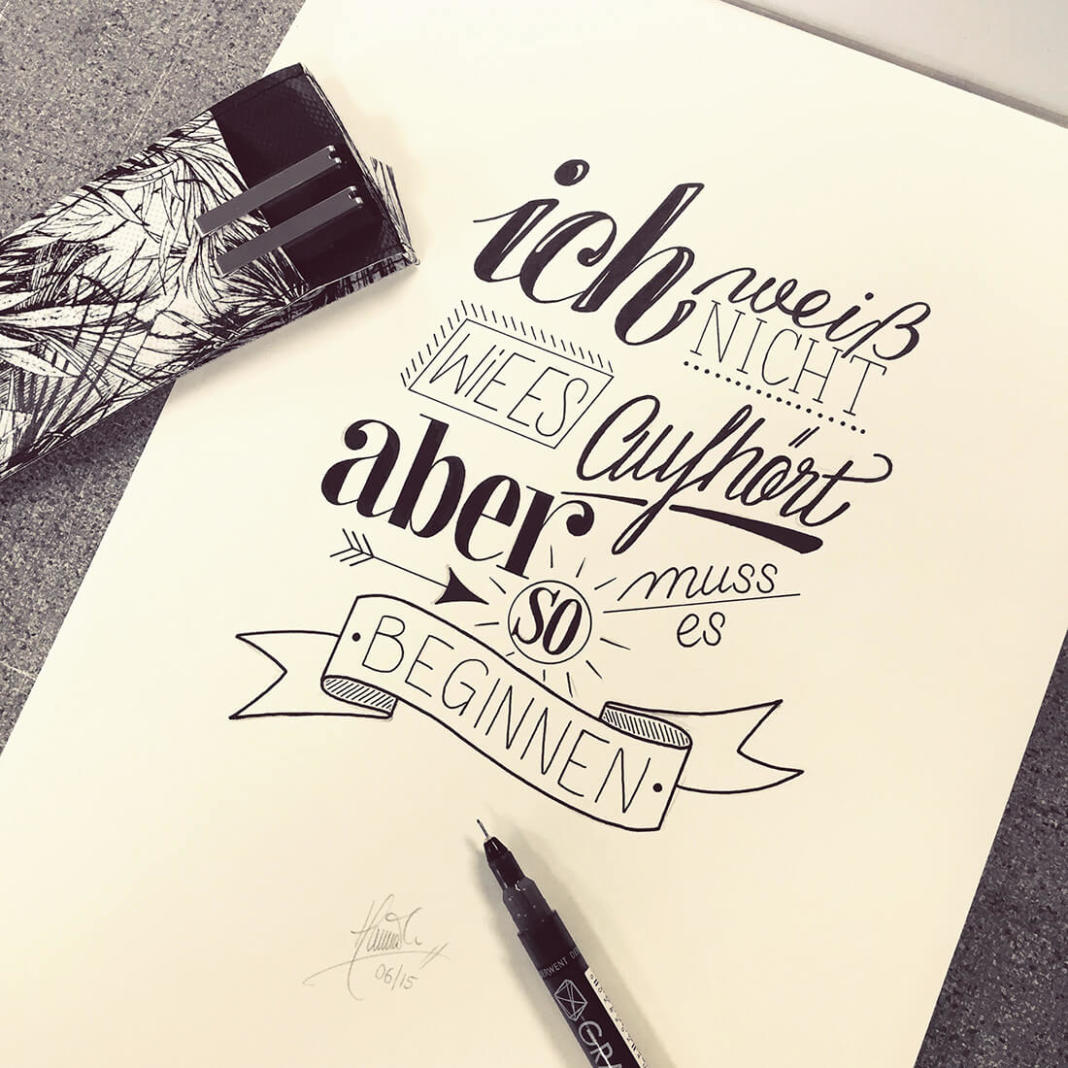 ich weiß
NICHT
WIE ES aufhört
aber
so muss
es
BEGINNEN
06/15
DERWENT
GRA